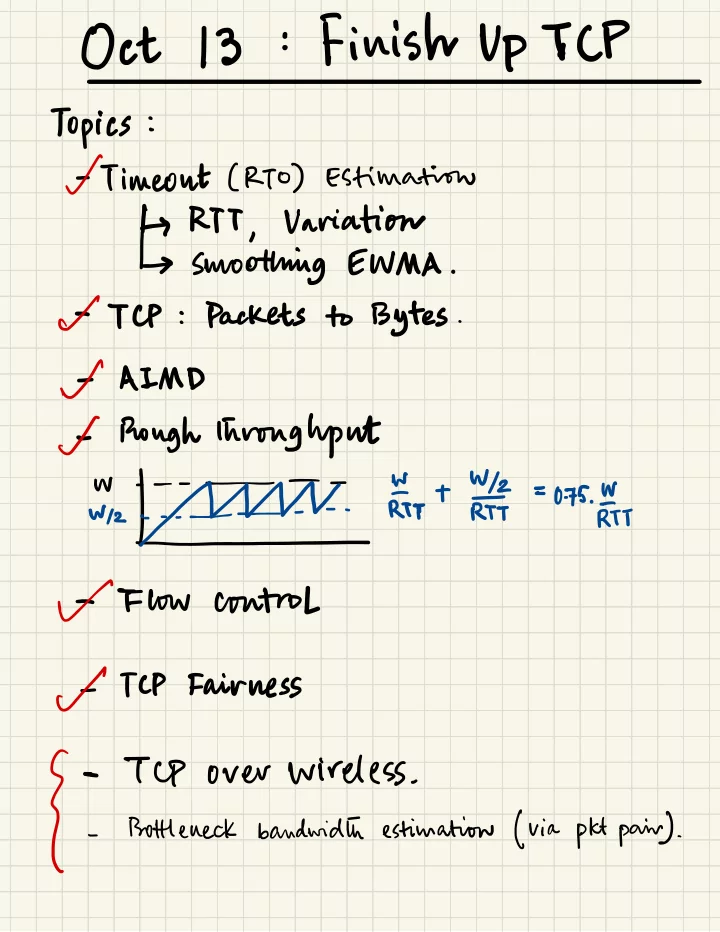 Oct 13 : Finish Up TCP
Topics :
- Timeout (RTO) Estimation
↳ RTT, Variation
↳ Smoothing EWMA.
- TCP : Packets to Bytes.
- AIMD
- Rough Throughput
W
W/2
W/RTT + W/2/RTT = 0.75. W/RTT
- Flow control
- TCP Fairness
- TCP over wireless.
- Bottleneck bandwidth estimation (via pkt pair).